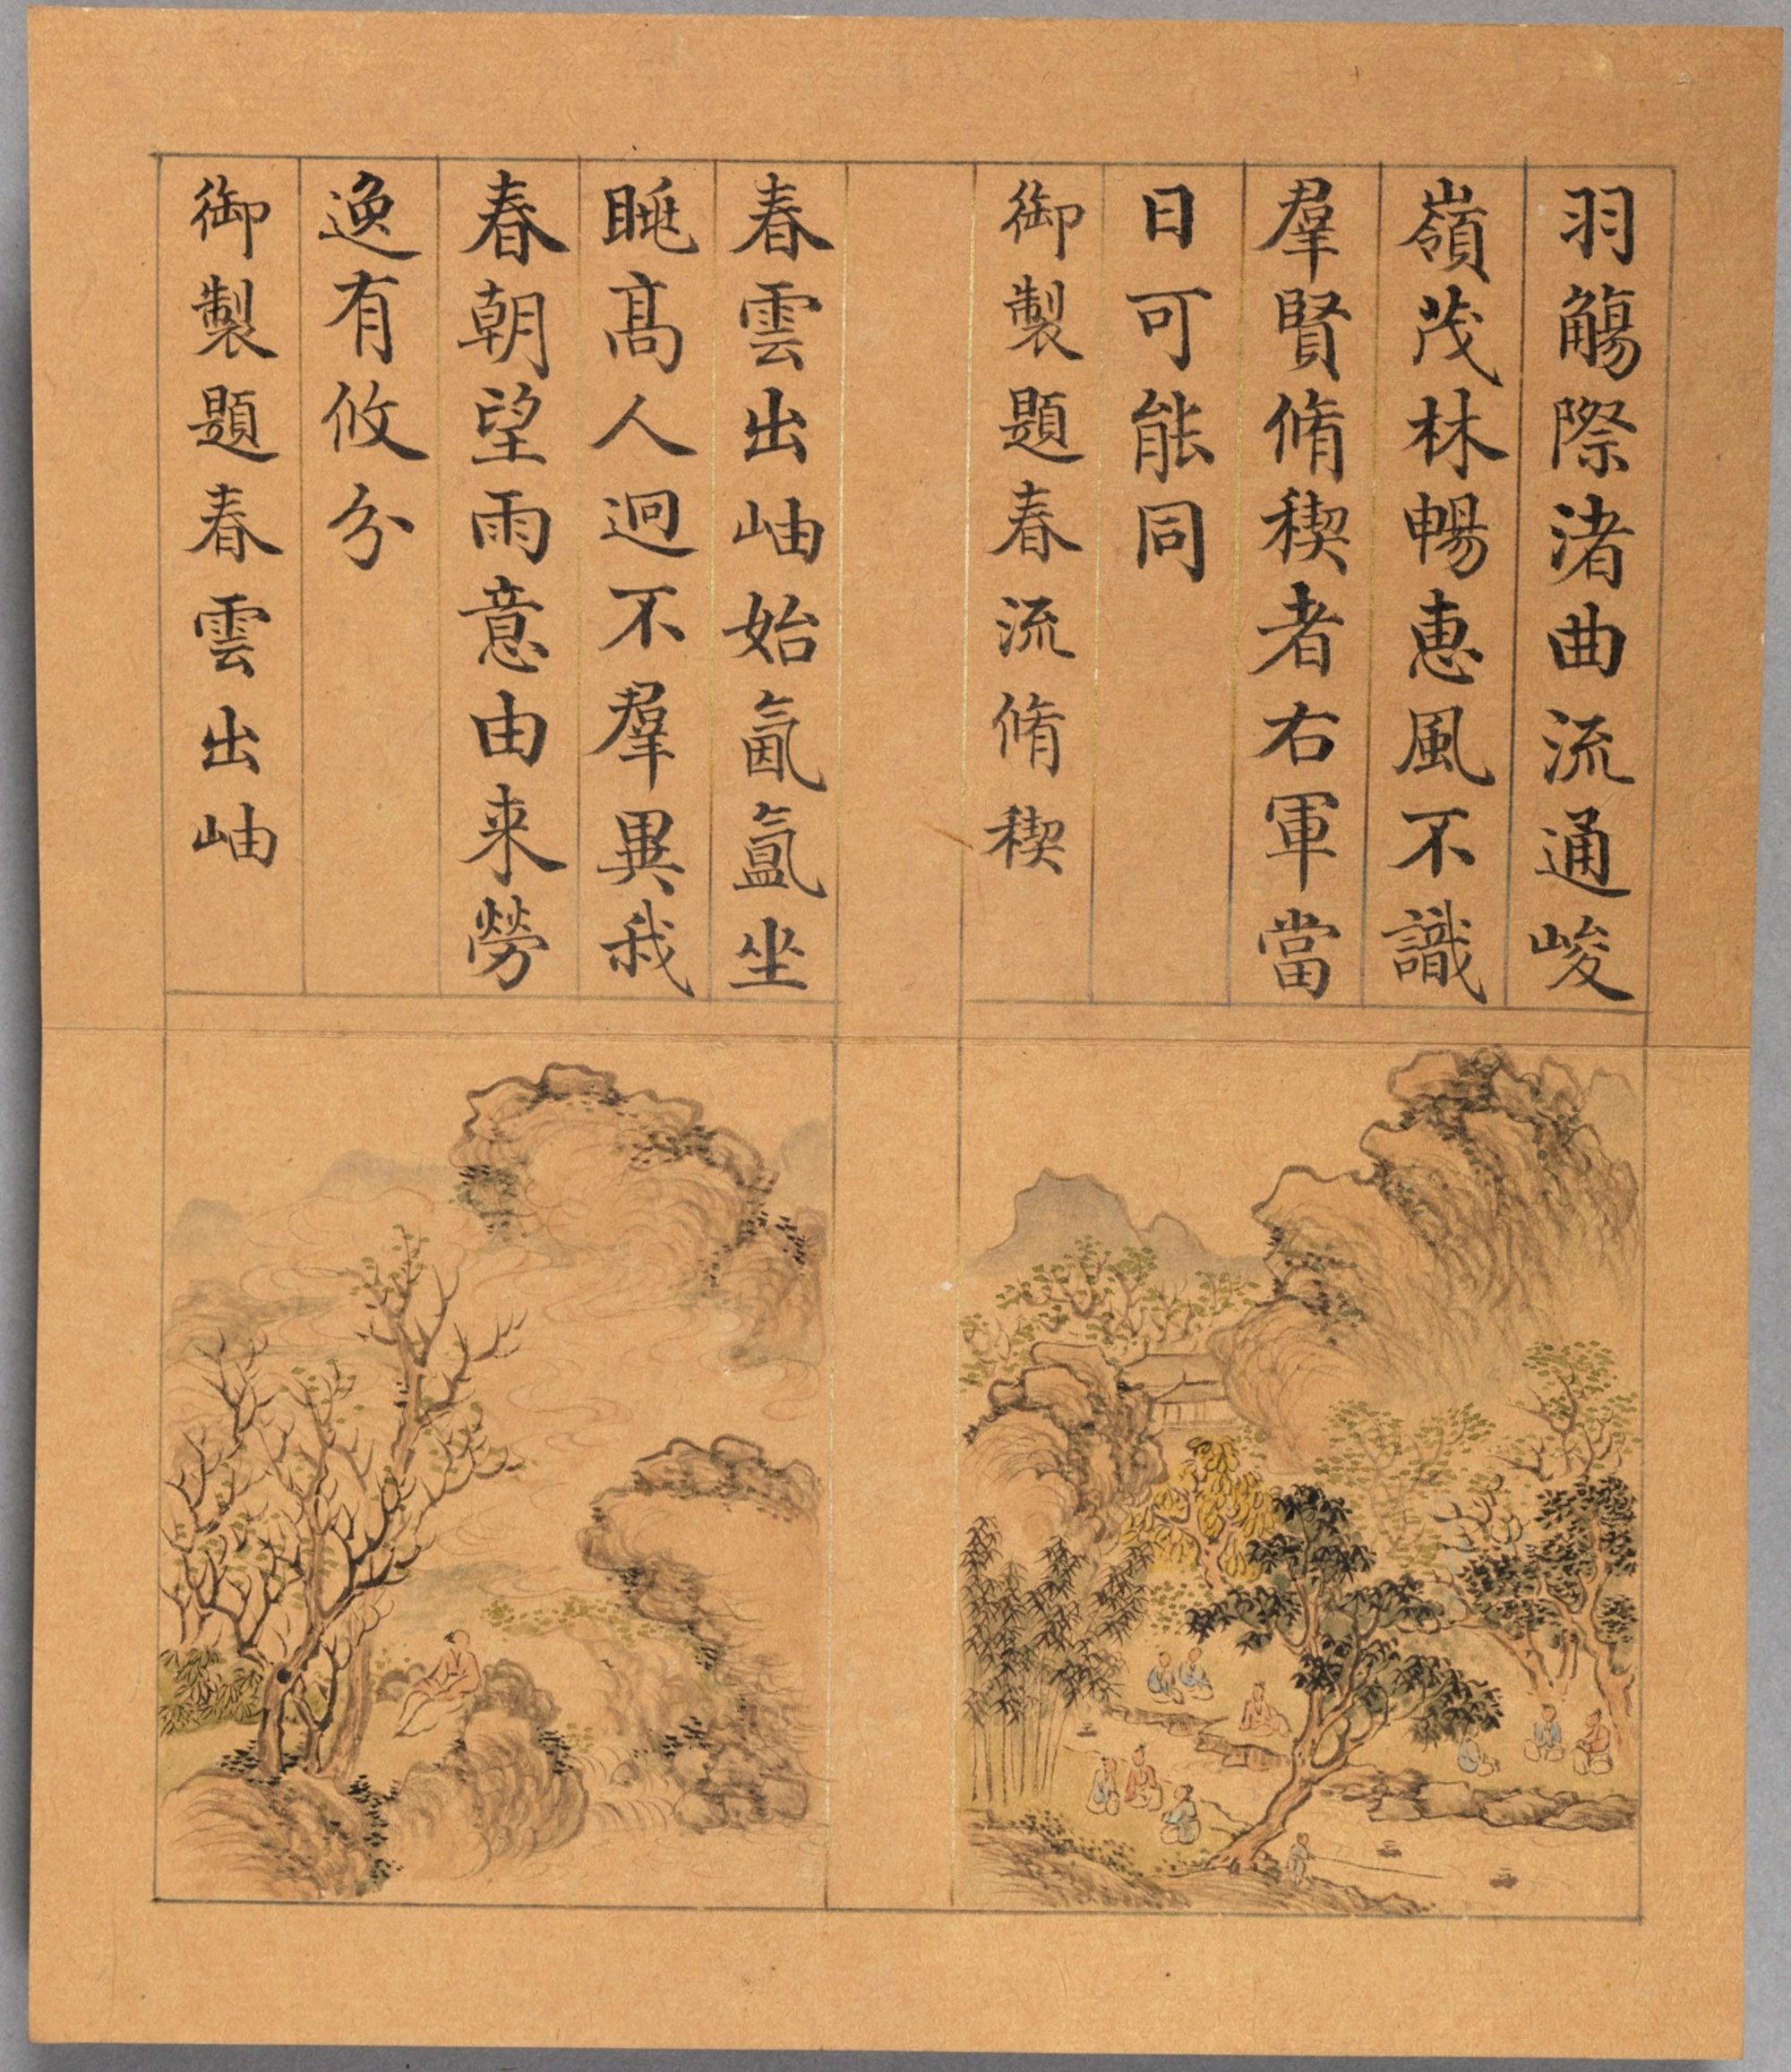 羽觴際渚曲流通峻
嶺茂林暢惠風不識
羣賢脩禊者右軍當
日可能同
御製題春流脩禊
春雲出岫始氤氳坐
眺高人迥不羣異我
春朝望雨意由来勞
逸有攸分
御製題春雲出岫